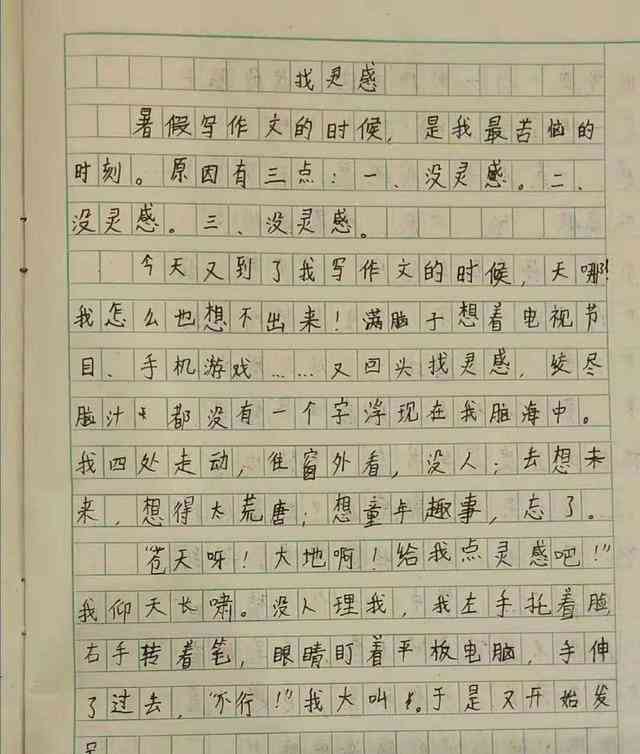 找灵感
暑假写作文的时候，是我最苦恼的
时刻。原因有三点：一、没灵感。二、
没灵感。三、没灵感。
今天又到了我写作文的时候，天哪！
我怎么也想不出来！满脑子想着电视节
目、手机游戏……又回头找灵感，绞尽
脑汁都没有一个字浮现在我脑海中。
我四处走动，往窗外看，没人；去想未
来，想得太荒唐；想童年趣事，忘了。
“苍天呀！大地啊！给我点灵感吧！”
我仰天长啸。没人理我，我左手托着脸，
右手转着笔，眼睛盯着平板电脑，手伸
了过去，“不行！”我大叫。于是又开始发
呆